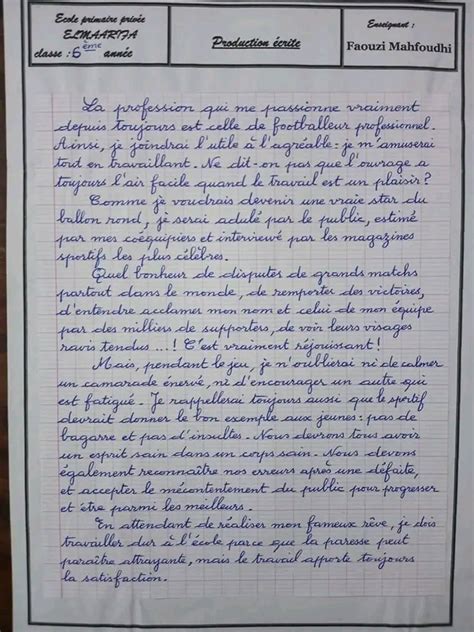 Ecole primaire privée
ELMAARIFA
classe : 6ème année
Production écrite
Enseignant :
Faouzi Mahfoudhi
La profession qui me passionne vraiment
depuis toujours est celle de footballeur professionnel.
Ainsi, je joindrai l'utile à l'agréable : je m'amuserai
tout en travaillant. Ne dit-on pas que l'ouvrage a
toujours l'air facile quand le travail est un plaisir ?
Comme je voudrais devenir une vraie star du
ballon rond, je serai adulé par le public, estimé
par mes coéquipiers et interviewé par les magazines
sportifs les plus célèbres.
Quel bonheur de disputer de grands matchs
partout dans le monde, de remporter des victoires,
d'entendre acclamer mon nom et celui de mon équipe
par des milliers de supporters, de voir leurs visages
ravis tendus ...! C'est vraiment réjouissant !
Mais, pendant le jeu, je n'oublierai ni de calmer
un camarade énervé, ni d'encourager un autre qui
est fatigué. Je rappellerai toujours aussi que le sportif
devrait donner le bon exemple aux jeunes : pas de
bagarre et pas d'insultes. Nous devrons tous avoir
un esprit sain dans un corps sain. Nous devons
également reconnaître nos erreurs après une défaite,
et accepter le mécontentement du public pour progresser
et être parmi les meilleurs.
En attendant de réaliser mon fameux rêve, je dois
travailler dur à l'école parce que la paresse peut
paraître attrayante, mais le travail apporte toujours
la satisfaction.